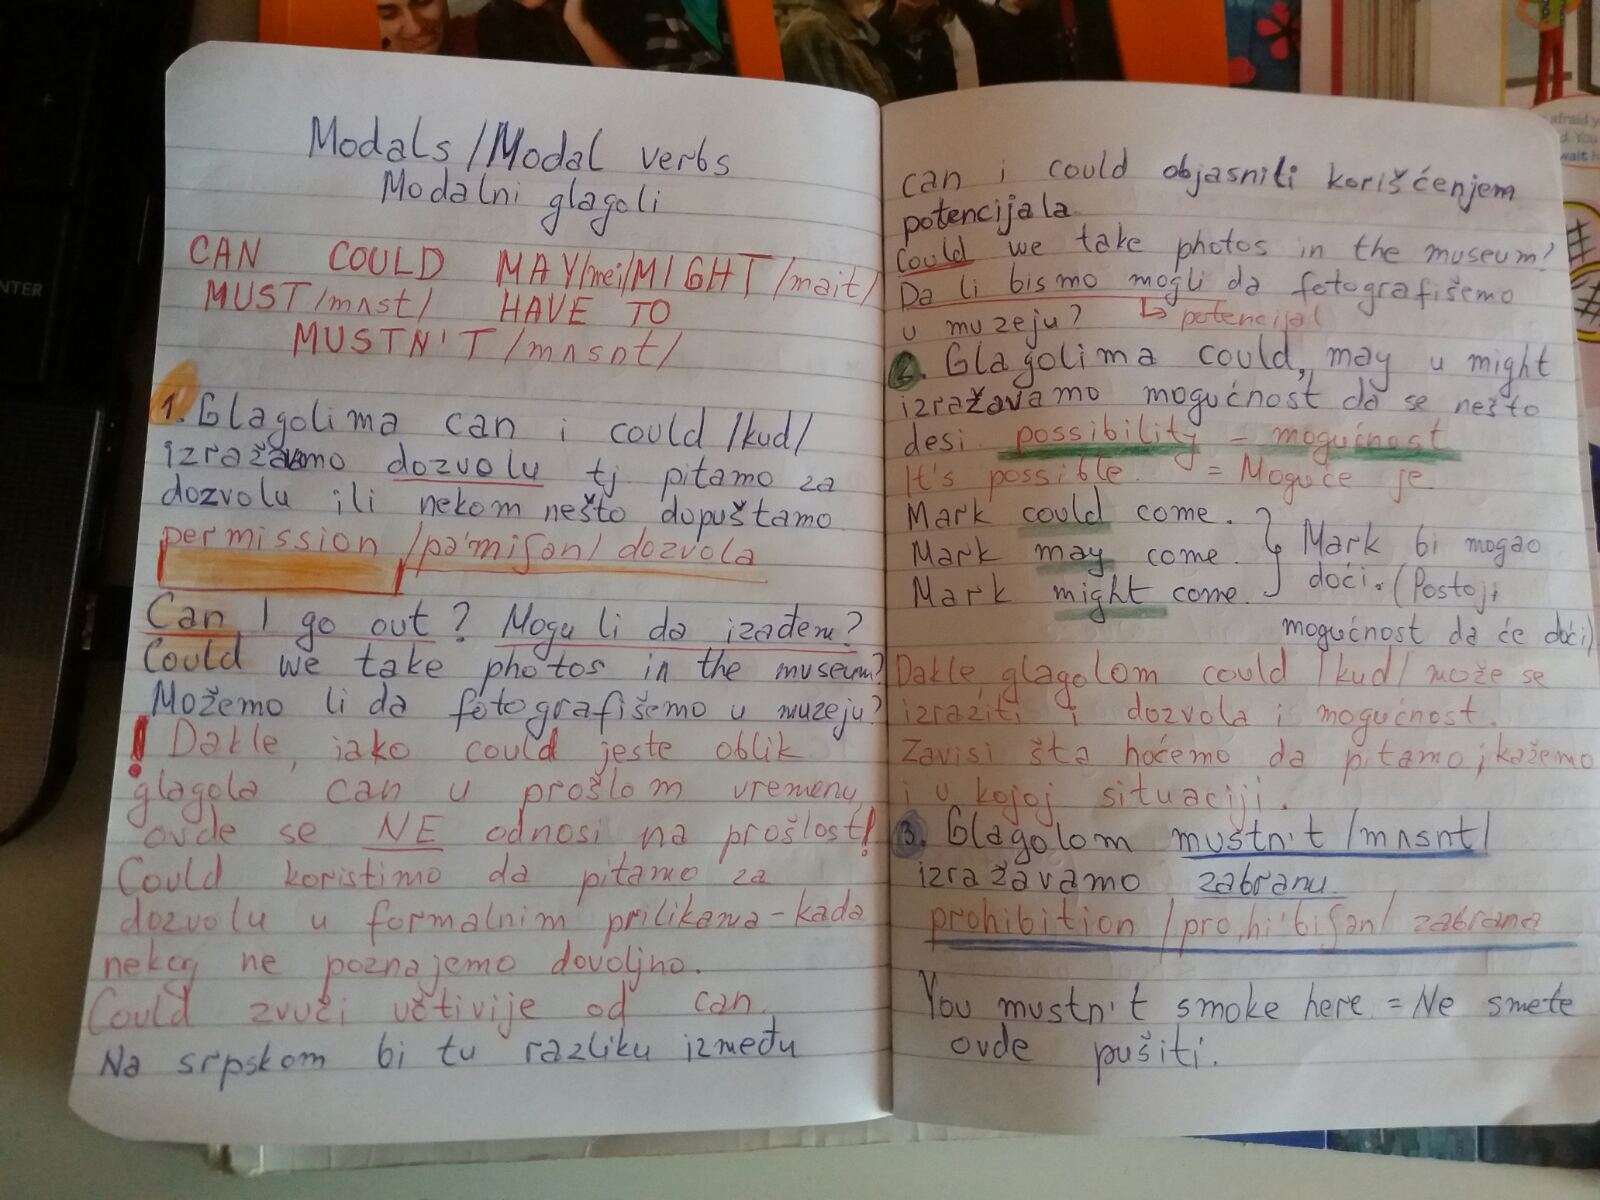 Modals /Modal verbs
Modalni glagoli
CAN COULD MAY/mei/MIGHT/mait/
MUST/mʌst/ HAVE TO
MUSTN'T/mʌsnt/
1. Glagolima can i could /kud/
izražavamo dozvolu tj pitamo za
dozvolu ili nekom nešto dopuštamo
permission /pə'miʃən/ dozvola
Can I go out? Mogu li da izađem?
Could we take photos in the museum?
Možemo li da fotografišemo u muzeju?
! Dakle, iako could jeste oblik
glagola can u prošlom vremenu
ovde se NE odnosi na prošlost!
Could koristimo da pitamo za
dozvolu u formalnim prilikama-kada
nekog ne poznajemo dovoljno.
Could zvuči učtivije od can.
Na srpskom bi tu razliku između
can i could objasnili korišćenjem
potencijala.
Could we take photos in the museum?
Da li bismo mogli da fotografišemo
u muzeju? ↳ potencijal
2. Glagolima could, may u might
izražavamo mogućnost da se nešto
desi. possibility - mogućnost
It's possible. = Moguće je.
Mark could come.
Mark may come. } Mark bi mogao
Mark might come. doći. (Postoji
mogućnost da će doći)
Dakle glagolom could /kud/ može se
izraziti i dozvola i mogućnost.
Zavisi šta hoćemo da pitamo, kažemo
i u kojoj situaciji.
3. Glagolom mustn't /mʌsnt/
izražavamo zabranu.
prohibition /prə,hi'biʃən/ zabrana
You mustn't smoke here. = Ne smete
ovde pušiti.
NTER
afraid y
d. You
wait